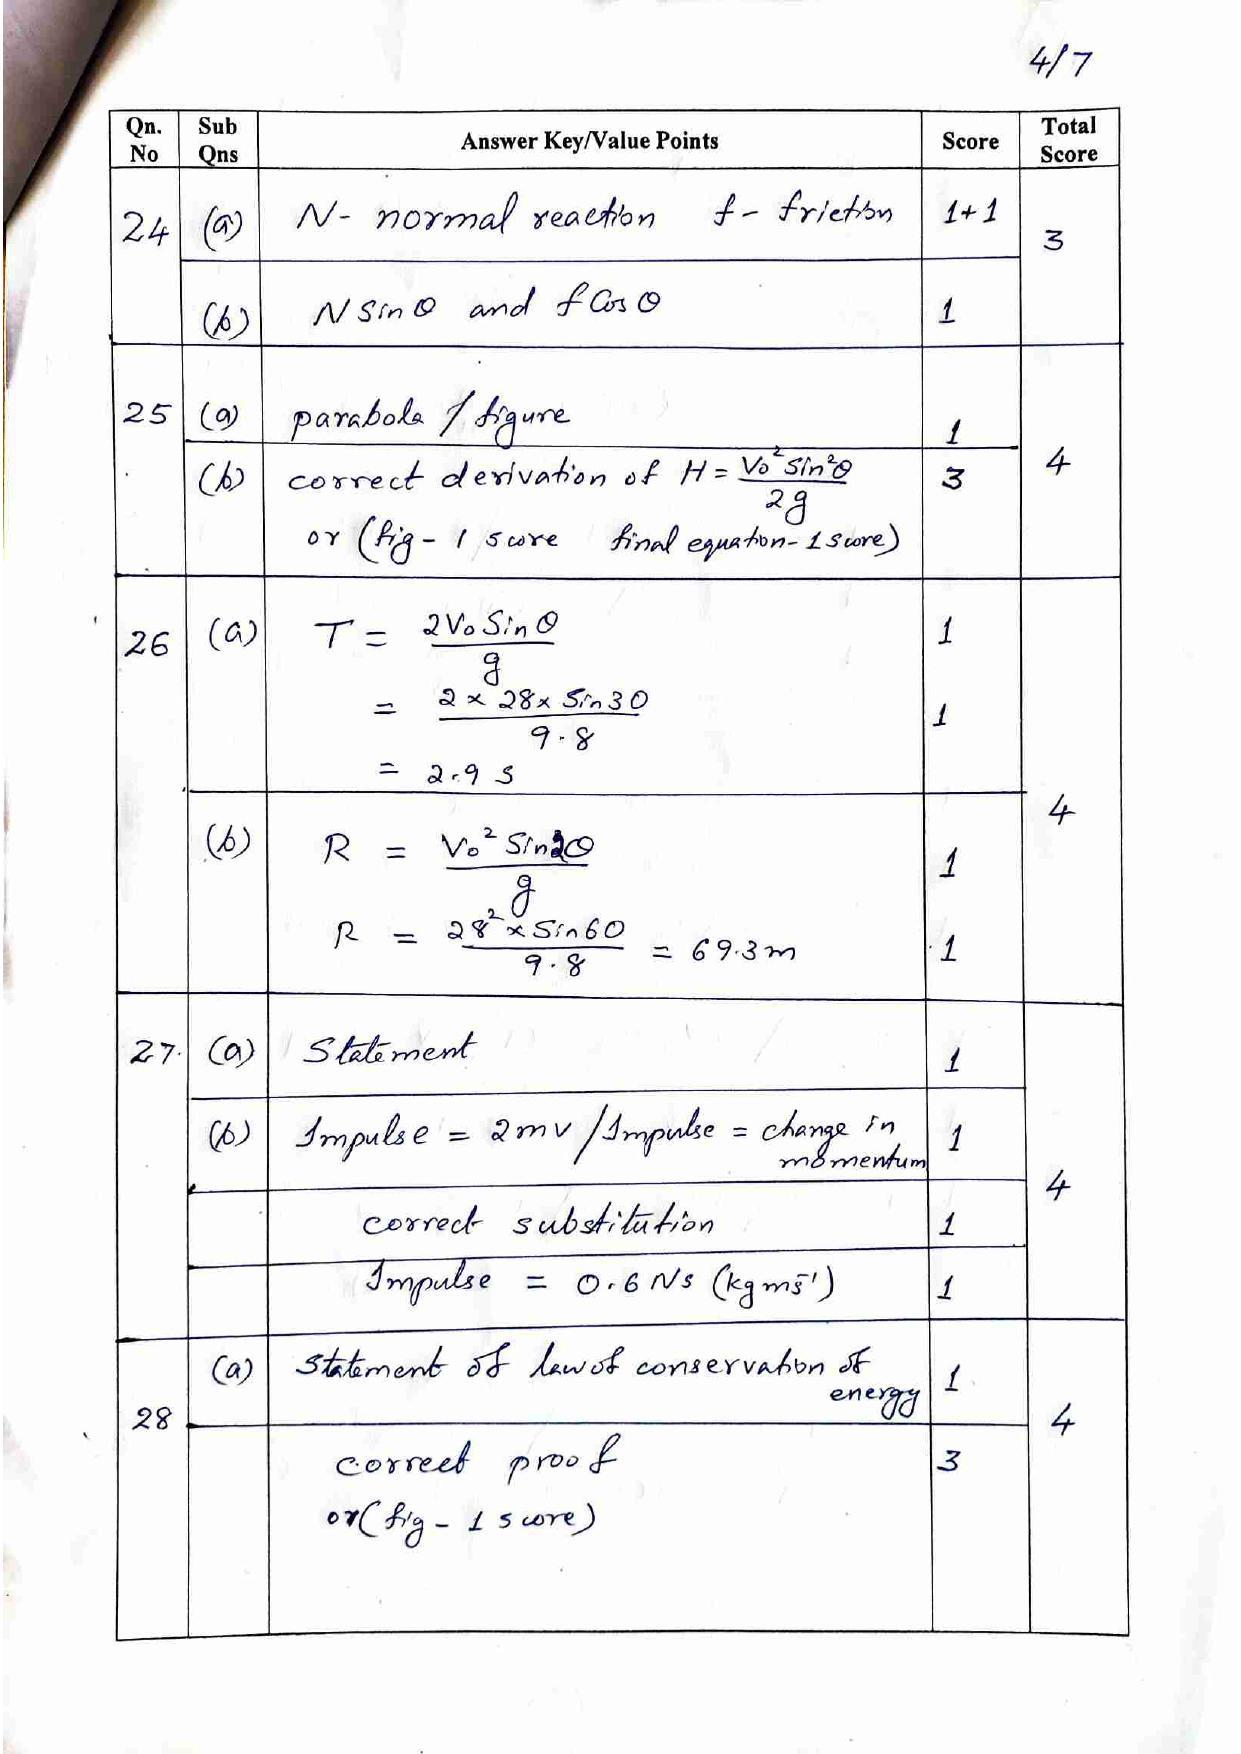 4/7
Qn. No Sub Qns Answer Key/Value Points Score Total Score
24 (a) N - normal reaction f - friction 1+1 3
(b) N Sin θ and f Cos θ 1
25 (a) parabola / figure 1 4
(b) correct derivation of H = V₀² Sin²θ / 2g 3
or (fig - 1 score final equation - 1 score)
26 (a) T = 2V₀ Sin θ / g 1 4
= 2 × 28 × Sin 30 / 9.8 1
= 2.9 s
(b) R = V₀² Sin2θ / g 1
R = 28² × Sin 60 / 9.8 = 69.3 m 1
27. (a) Statement 1 4
(b) Impulse = 2mv / Impulse = change in momentum 1
correct substitution 1
Impulse = 0.6 Ns (kg ms⁻¹) 1
28 (a) Statement of law of conservation of energy 1 4
correct proof 3
or (fig - 1 score)